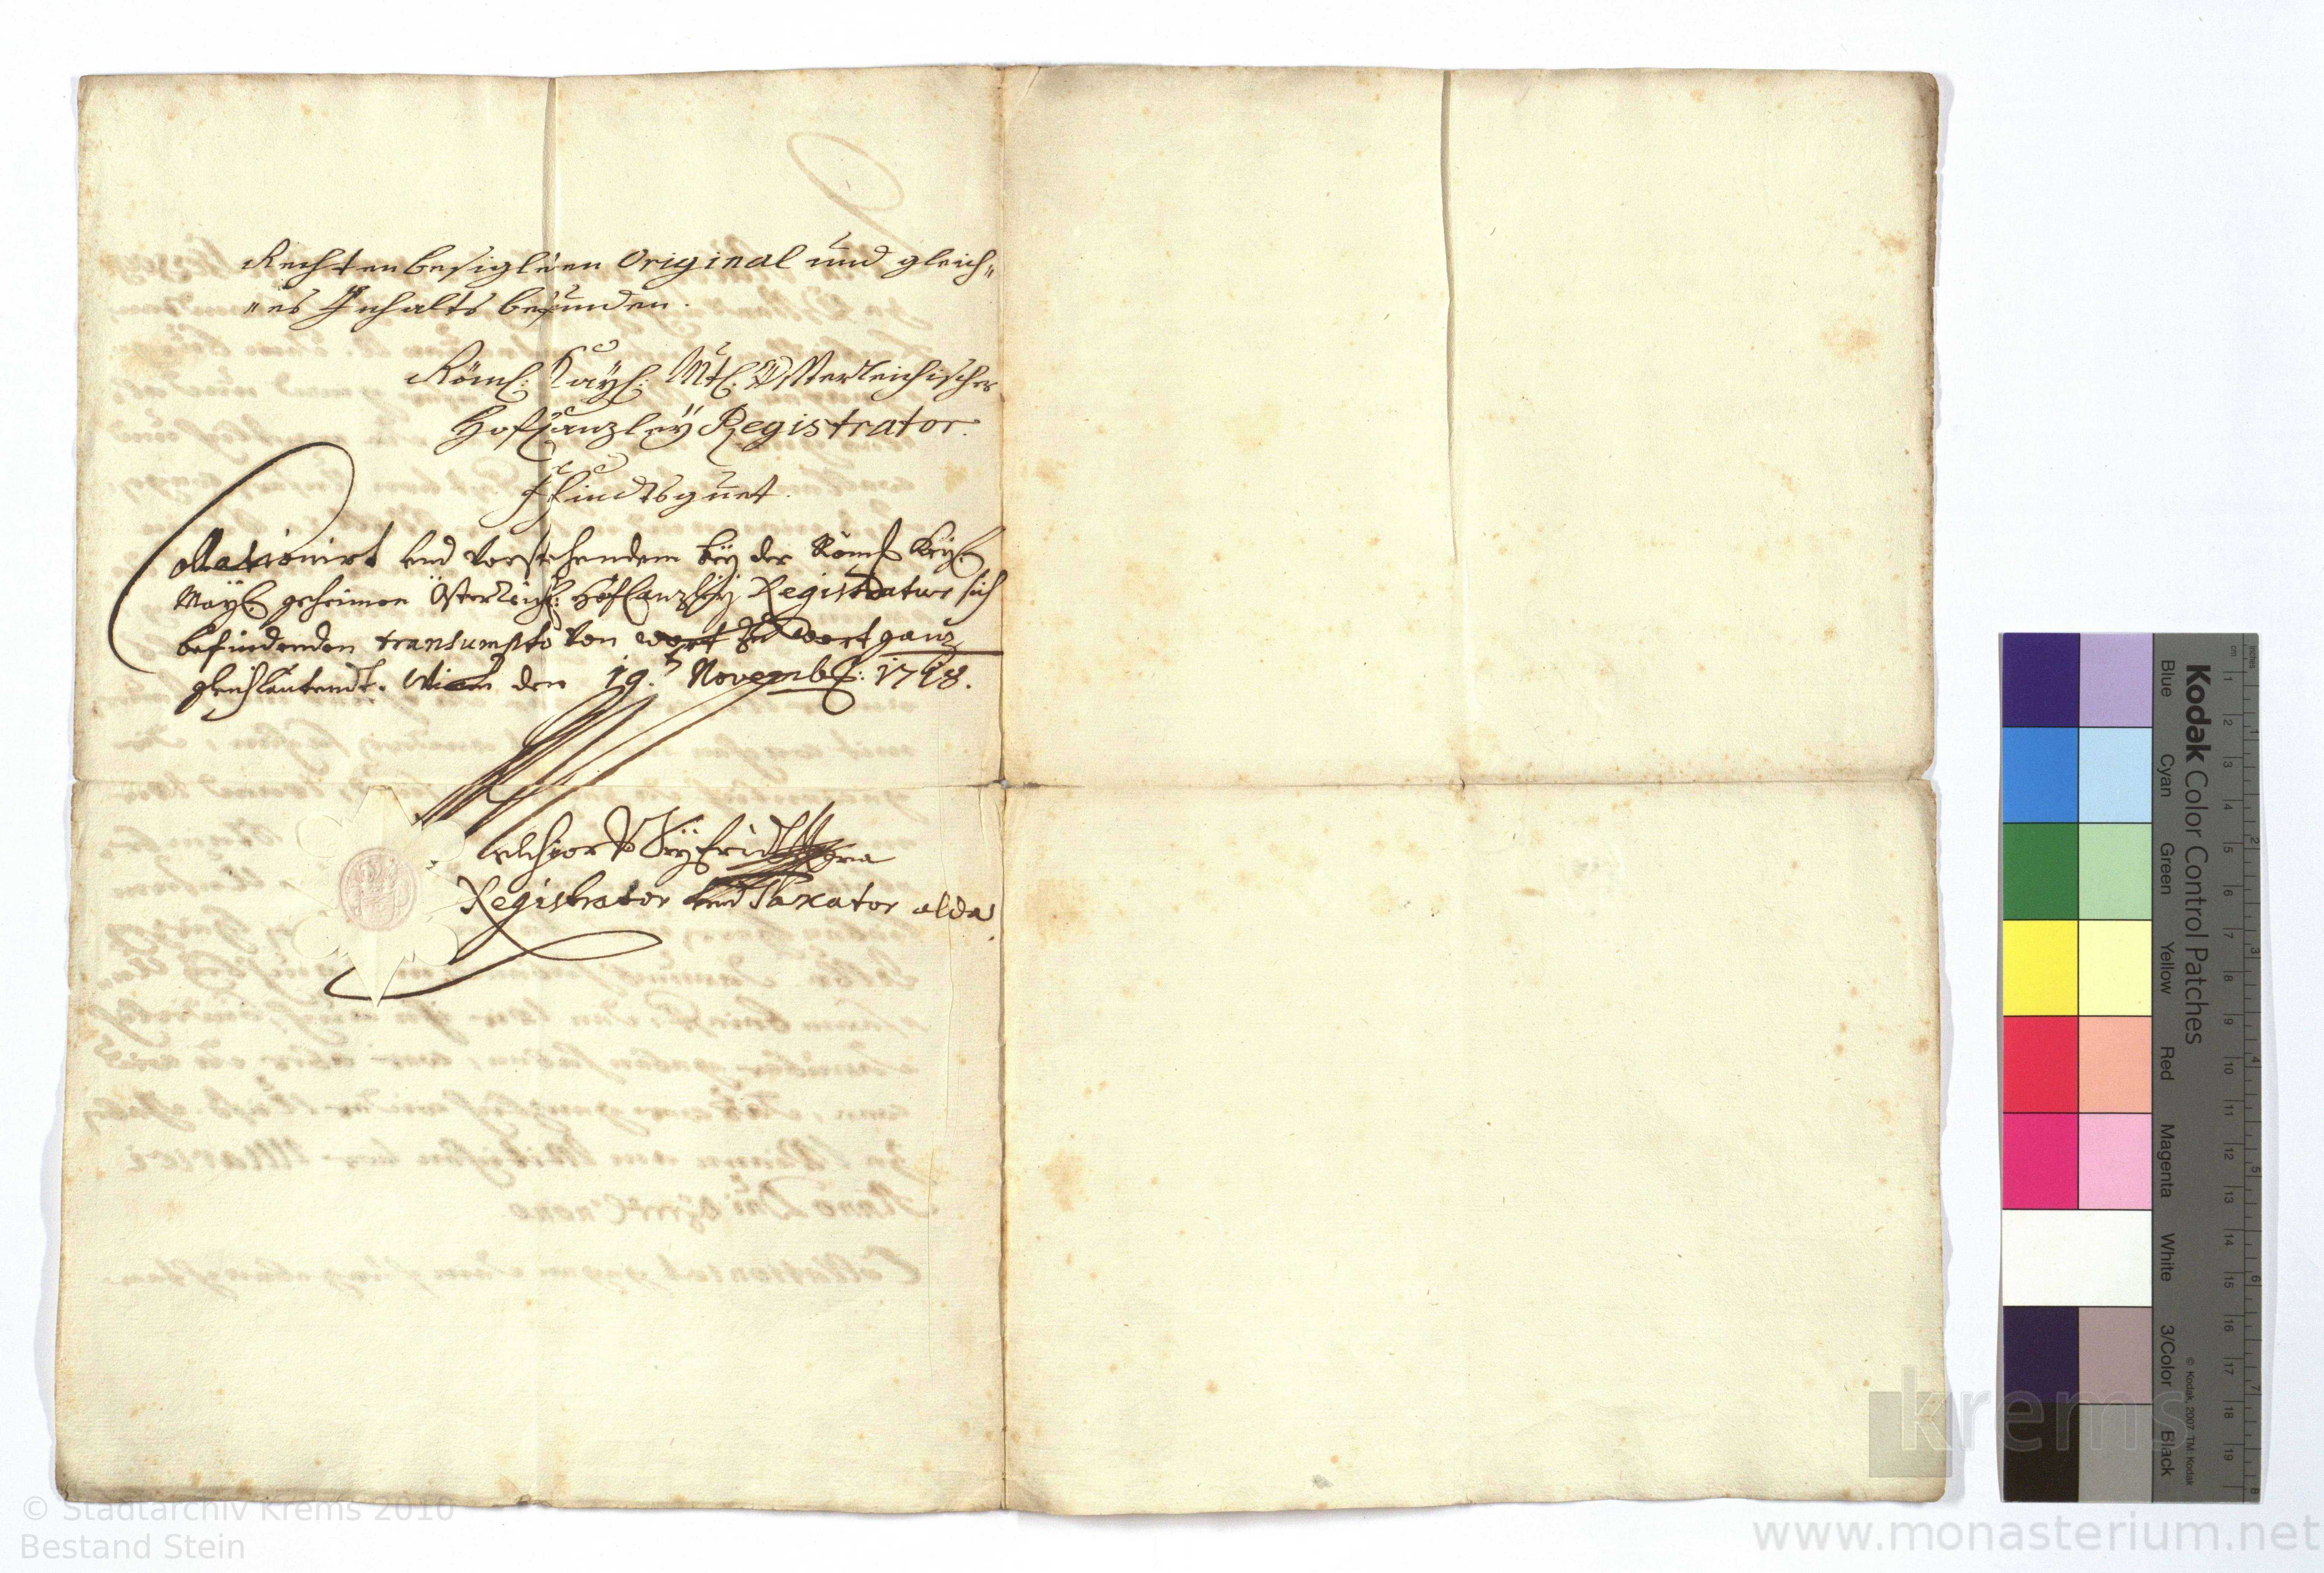 Rechten besigleten Original und gleich„
„es Inhalts befunden.
Röml: Kayl: Mtl: Österreichischer
Hofcanzley Registrator.
Collationirt und vorstehendem bey der Röml Keyl:
Mayl: geheimen Österreichl: HofCanzley Registratur sich
befindenden transumpto von wort zu wort ganz
gleichlautendt. Wien den 19.t Novembl: 1718.
Registrator und Taxator alda
© Stadtarchiv Krems 2010
Bestand Stein
krems
www.monasterium.net
Kodak Color Control Patches
Blue Cyan Green Yellow Red Magenta White 3/Color Black
© Kodak, 2007 TM: Kodak
inches
cm
1 2 3 4 5 6 7 8 9 10 11 12 13 14 15 16 17 18 19
1 2 3 4 5 6 7 8